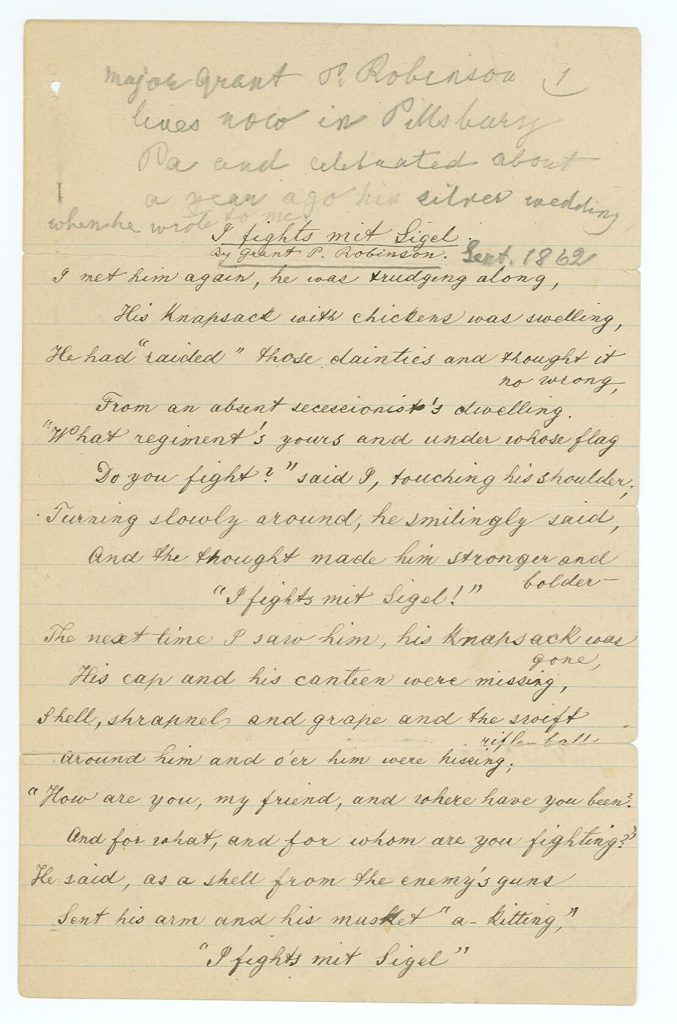 Major Grant P. Robinson 1
lives now in Pittsbury
Pa and celebrated about
a year ago his silver wedding
when he wrote to me
I fights mit Sigel
By Grant P. Robinson. Sept. 1862
I met him again, he was trudging along,
His Knapsack with chickens was swelling,
He had "raided" those dainties and thought it
no wrong,
From an absent secescionist's dwelling.
"What regiment's yours and under whose flag
Do you fight?" said I, touching his shoulder,
Turning slowly around, he smilingly said,
And the thought made him stronger and
bolder—
"I fights mit Sigel!"
The next time I saw him, his Knapsack was
gone,
His cap and his canteen were missing,
Shell, shrapnel, and grape and the swift
rifle-ball
around him and o'er him were hissing;
"How are you, my friend, and where have you been?
And for what, and for whom are you fighting?"
He said, as a shell from the enemy's guns
Sent his arm and his musket "a-kitting,"
"I fights mit Sigel"